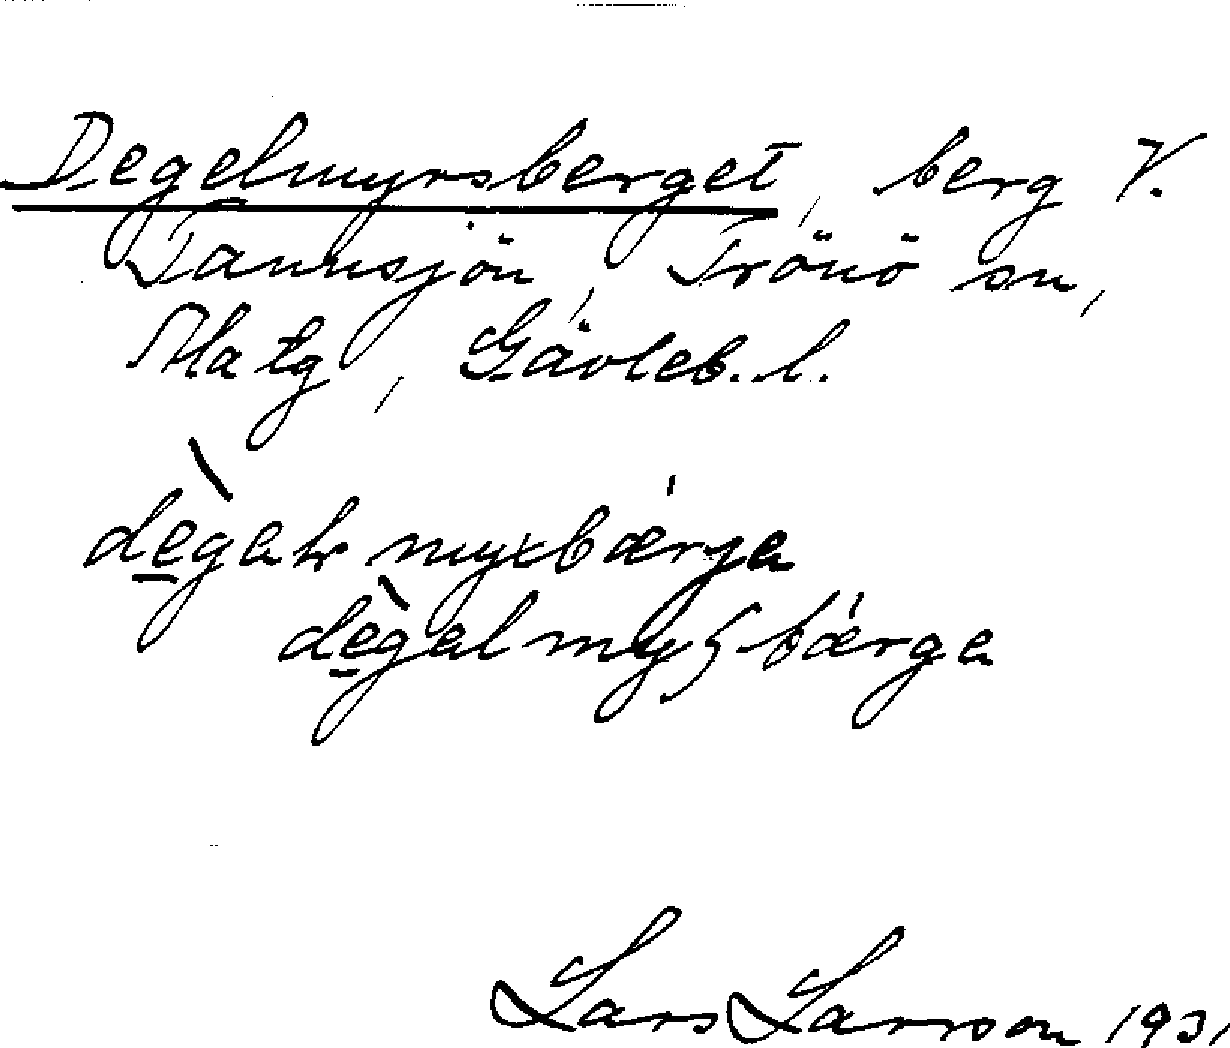 Degelmyrsberget, berg V.
Tannsjön, Trönö sn,
Ala tg, Gävleb. l.
dègaḷ myxbærga
dègal myʂbærga
Lars Larsson 1931